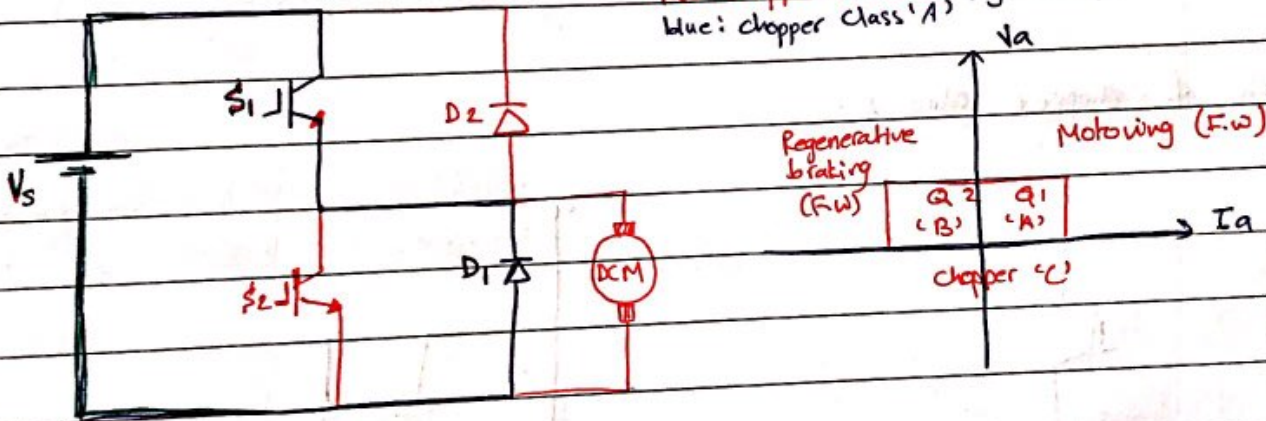 blue: chopper Class 'A'
Va
S1
D2
Regenerative
braking
(F.W)
Motoring (F.W)
Vs
Q2
'B'
Q1
'A'
Ia
D1
DCM
S2
chopper 'C'